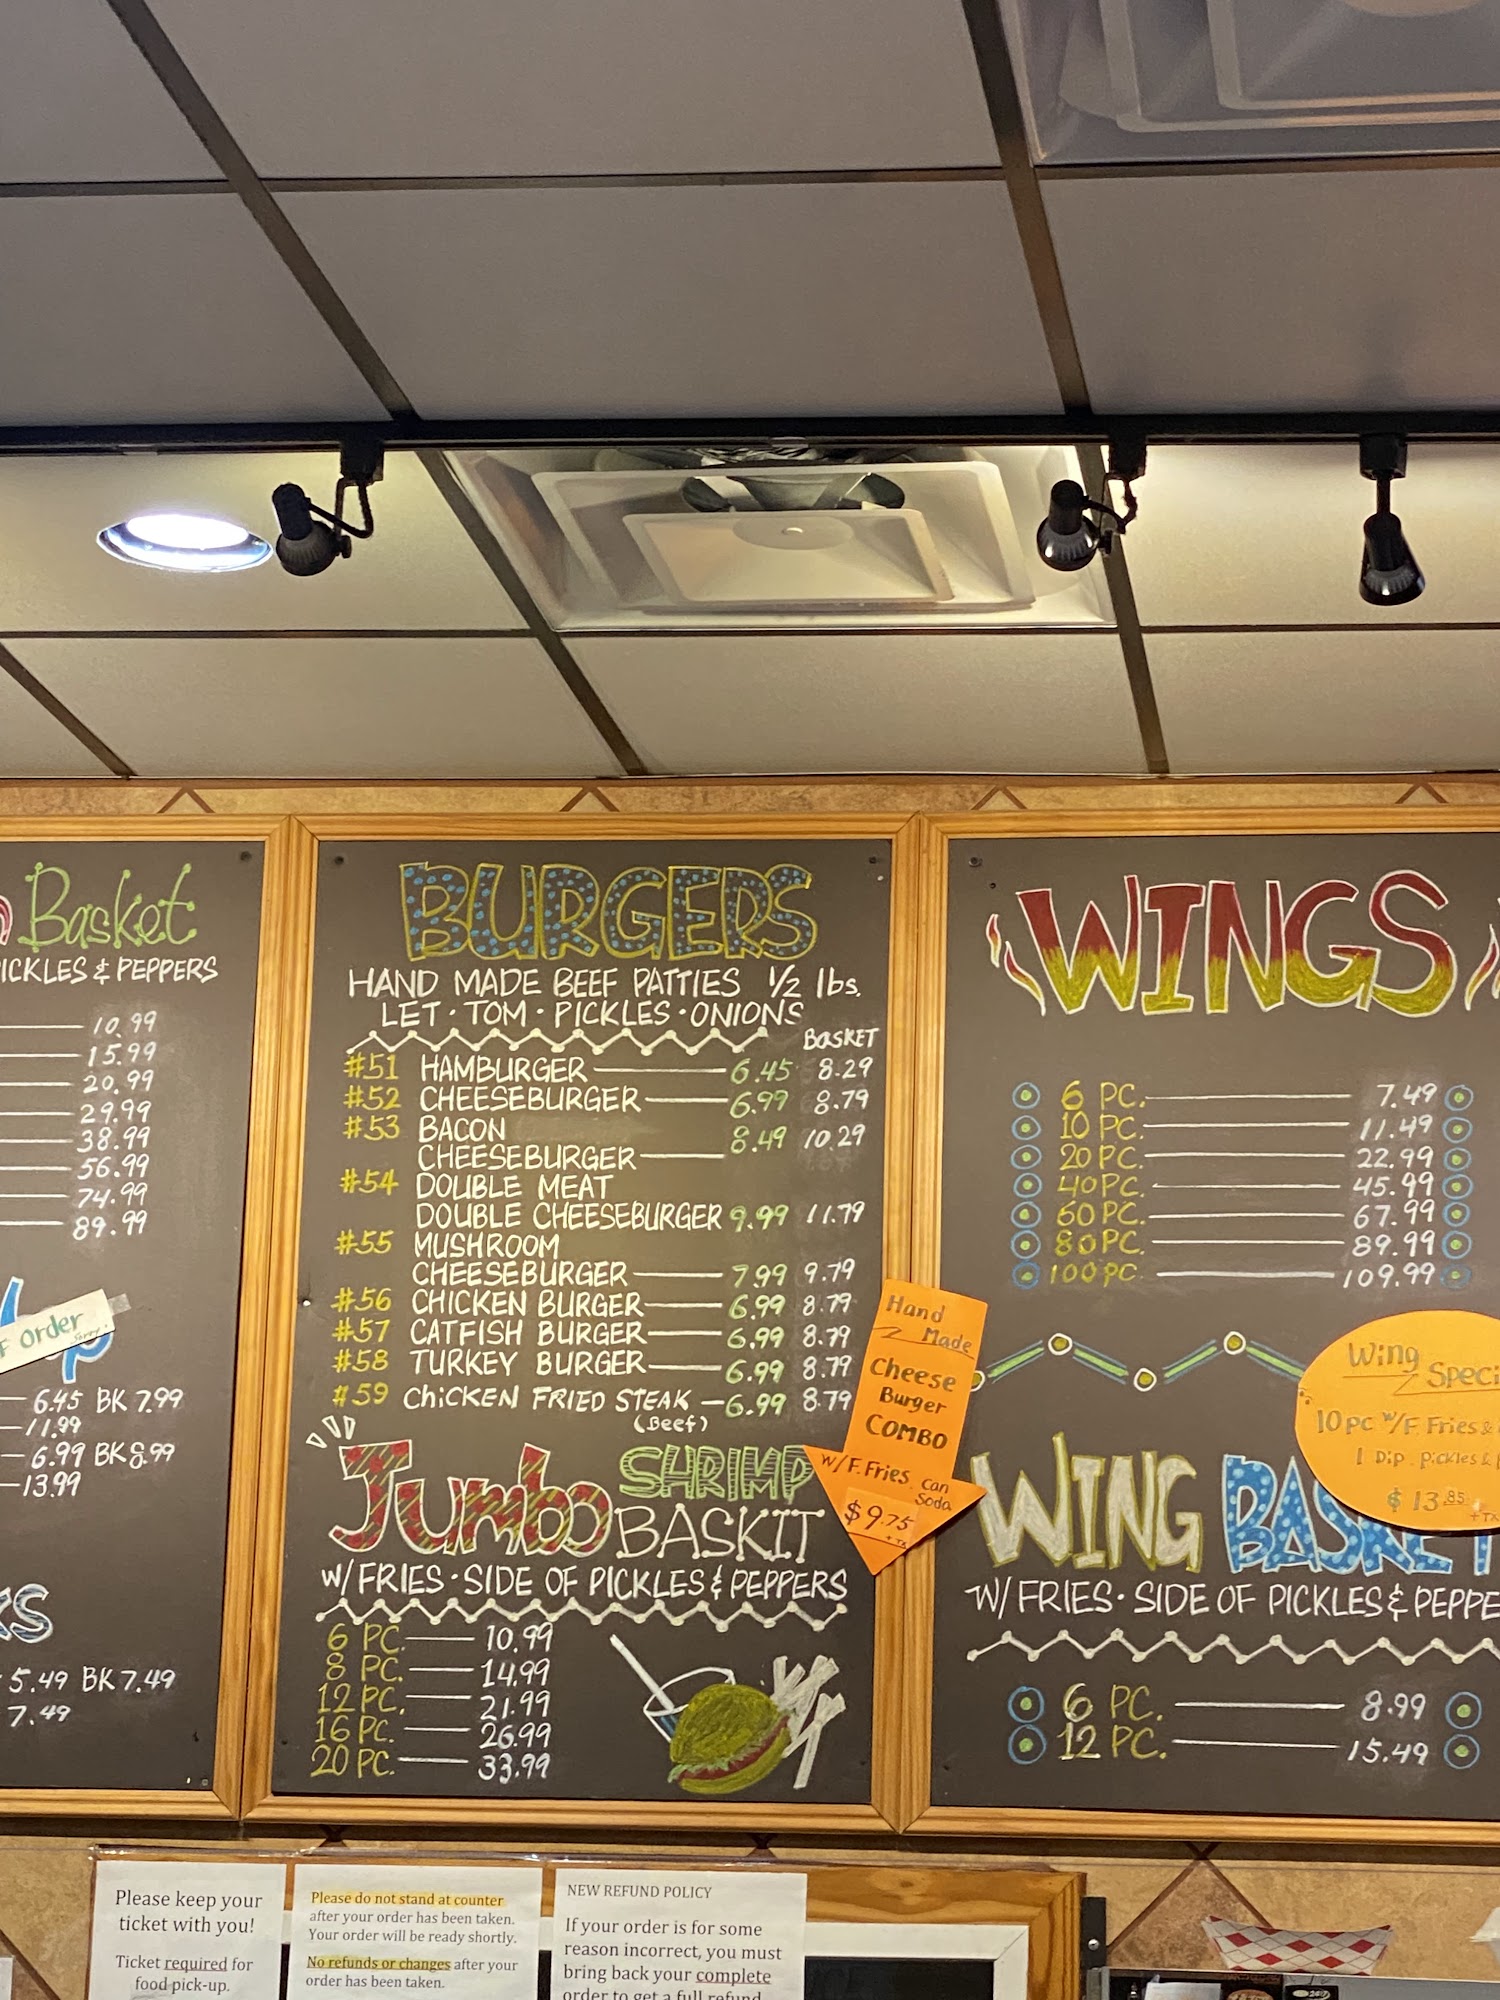 Basket
PICKLES & PEPPERS
10.99
15.99
20.99
29.99
38.99
56.99
74.99
89.99
F Order
Sorry!
6.45 BK 7.99
11.99
6.99 BK 8.99
13.99
KS
5.49 BK 7.49
7.49
BURGERS
HAND MADE BEEF PATTIES 1/2 lbs.
LET · TOM · PICKLES · ONIONS
BASKET
#51 HAMBURGER 6.45 8.29
#52 CHEESEBURGER 6.99 8.79
#53 BACON
CHEESEBURGER 8.49 10.29
#54 DOUBLE MEAT
DOUBLE CHEESEBURGER 9.99 11.79
#55 MUSHROOM
CHEESEBURGER 7.99 9.79
#56 CHICKEN BURGER 6.99 8.79
#57 CATFISH BURGER 6.99 8.79
#58 TURKEY BURGER 6.99 8.79
#59 CHiCKEN FRIED STEAK 6.99 8.79
(Beef)
Jumbo SHRIMP
BASKIT
W/ FRIES · SIDE OF PICKLES & PEPPERS
6 PC. 10.99
8 PC. 14.99
12 PC. 21.99
16 PC. 26.99
20 PC. 33.99
Hand
Made
Cheese
Burger
COMBO
W/F. Fries. Can
Soda
$9.75
+TX
WINGS
6 PC. 7.49
10 PC. 11.49
20 PC. 22.99
40 PC. 45.99
60 PC. 67.99
80 PC. 89.99
100 PC 109.99
Wing
Speci
10 pc W/F. Fries &
1 Dip. pickles &
$ 13.85
+TX
WING BASKET
W/ FRIES · SIDE OF PICKLES & PEPPE
6 PC. 8.99
12 PC. 15.49
Please keep your
ticket with you!
Ticket required for
food pick-up.
Please do not stand at counter
after your order has been taken.
Your order will be ready shortly.
No refunds or changes after your
order has been taken.
NEW REFUND POLICY
If your order is for some
reason incorrect, you must
bring back your complete
order to get a full refund